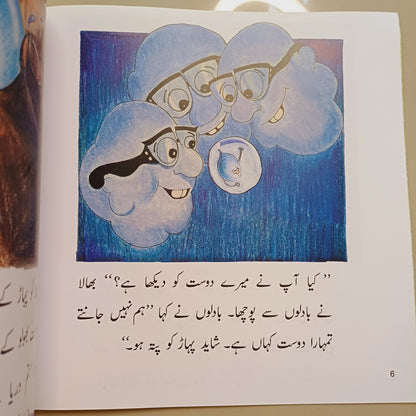 ” کیا آپ نے میرے دوست کو دیکھا ہے؟“ بھالا
نے بادلوں سے پوچھا۔ بادلوں نے کہا ”ہم نہیں جانتے
تمہارا دوست کہاں ہے۔ شاید پہاڑ کو پتہ ہو۔“
6